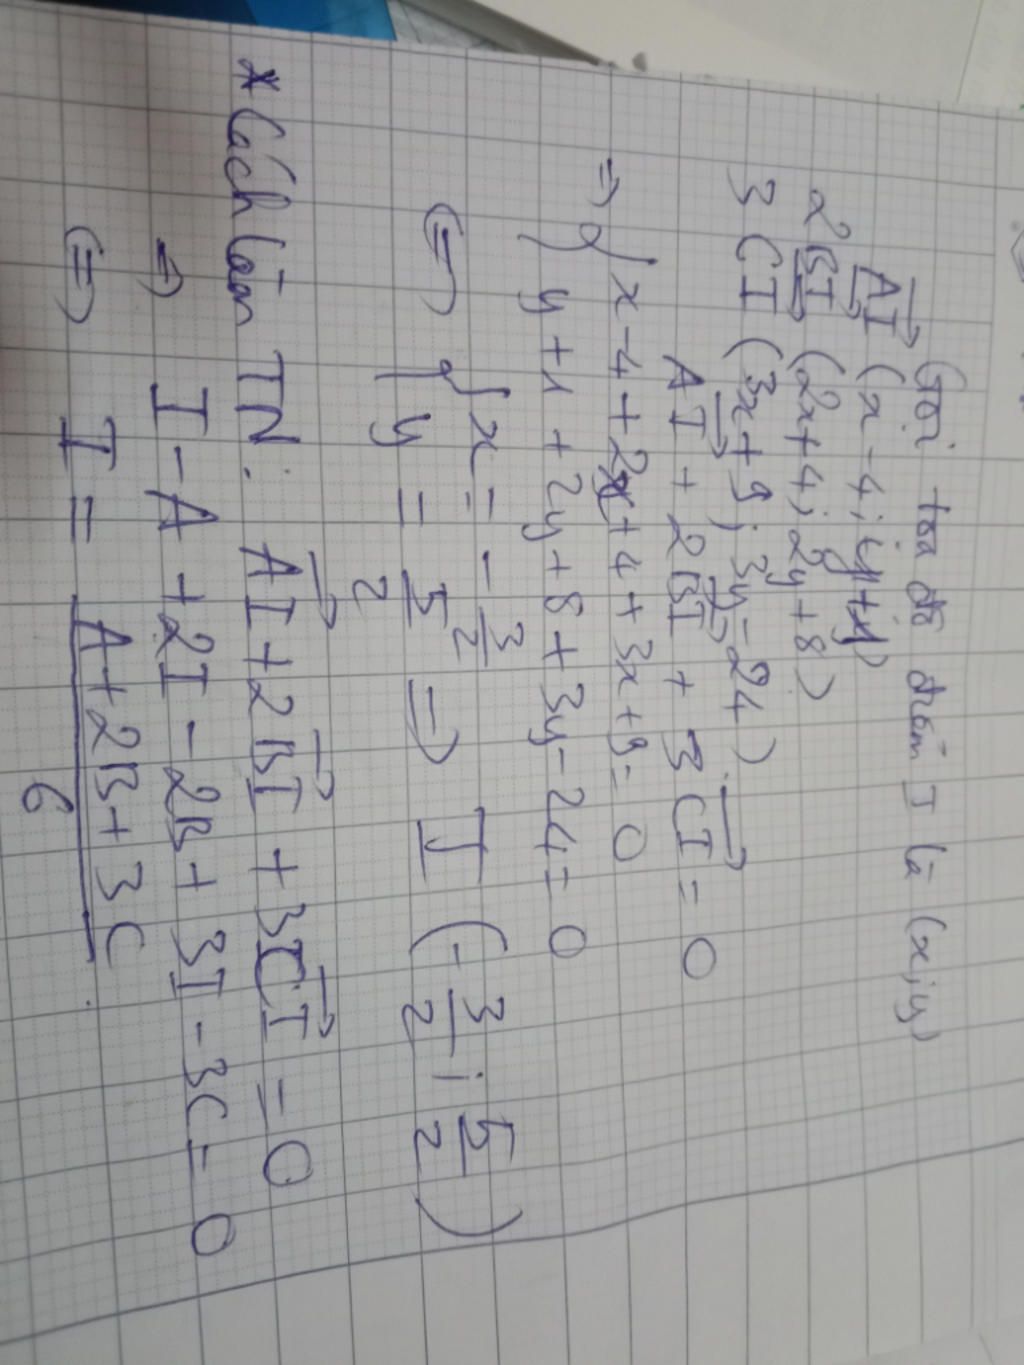 Gọi toạ độ điểm I là (x;y)
AI (x-4; y+1)
2BI (2x+4; 2y+8)
3 CI (3x+9; 3y-24)
AI + 2BI + 3CI = 0
=> { x-4+2x+4+3x+9=0
y+1+2y+8+3y-24=0
<=> { x = -3/2
y = 5/2 => I (-3/2; 5/2)
* Cách làm TN: AI + 2BI + 3CI = 0
=> I - A + 2I - 2B + 3I - 3C = 0
<=> I = A+2B+3C / 6